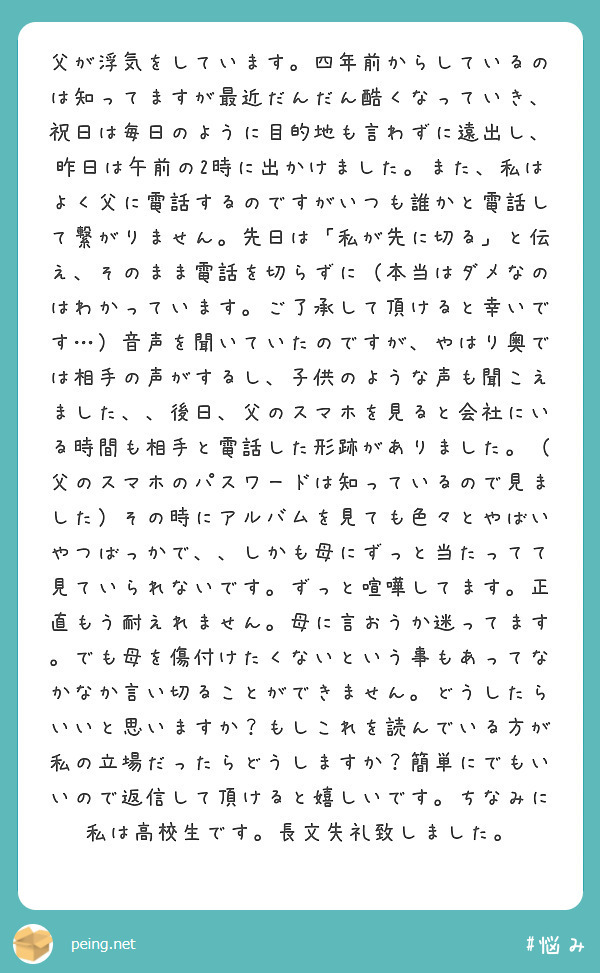 父が浮気をしています。四年前からしているの
は知ってますが最近だんだん酷くなっていき、
祝日は毎日のように目的地も言わずに遠出し、
昨日は午前の2時に出かけました。また、私は
よく父に電話するのですがいつも誰かと電話し
て繋がりません。先日は「私が先に切る」と伝
え、そのまま電話を切らずに（本当はダメなの
はわかっています。ご了承して頂けると幸いで
す…）音声を聞いていたのですが、やはり奥で
は相手の声がするし、子供のような声も聞こえ
ました、、後日、父のスマホを見ると会社にい
る時間も相手と電話した形跡がありました。（
父のスマホのパスワードは知っているので見ま
した）その時にアルバムを見ても色々とやばい
やつばっかで、、しかも母にずっと当たってて
見ていられないです。ずっと喧嘩してます。正
直もう耐えれません。母に言おうか迷ってます
。でも母を傷付けたくないという事もあってな
かなか言い切ることができません。どうしたら
いいと思いますか？もしこれを読んでいる方が
私の立場だったらどうしますか？簡単にでもい
いので返信して頂けると嬉しいです。ちなみに
私は高校生です。長文失礼致しました。
peing.net
#悩み